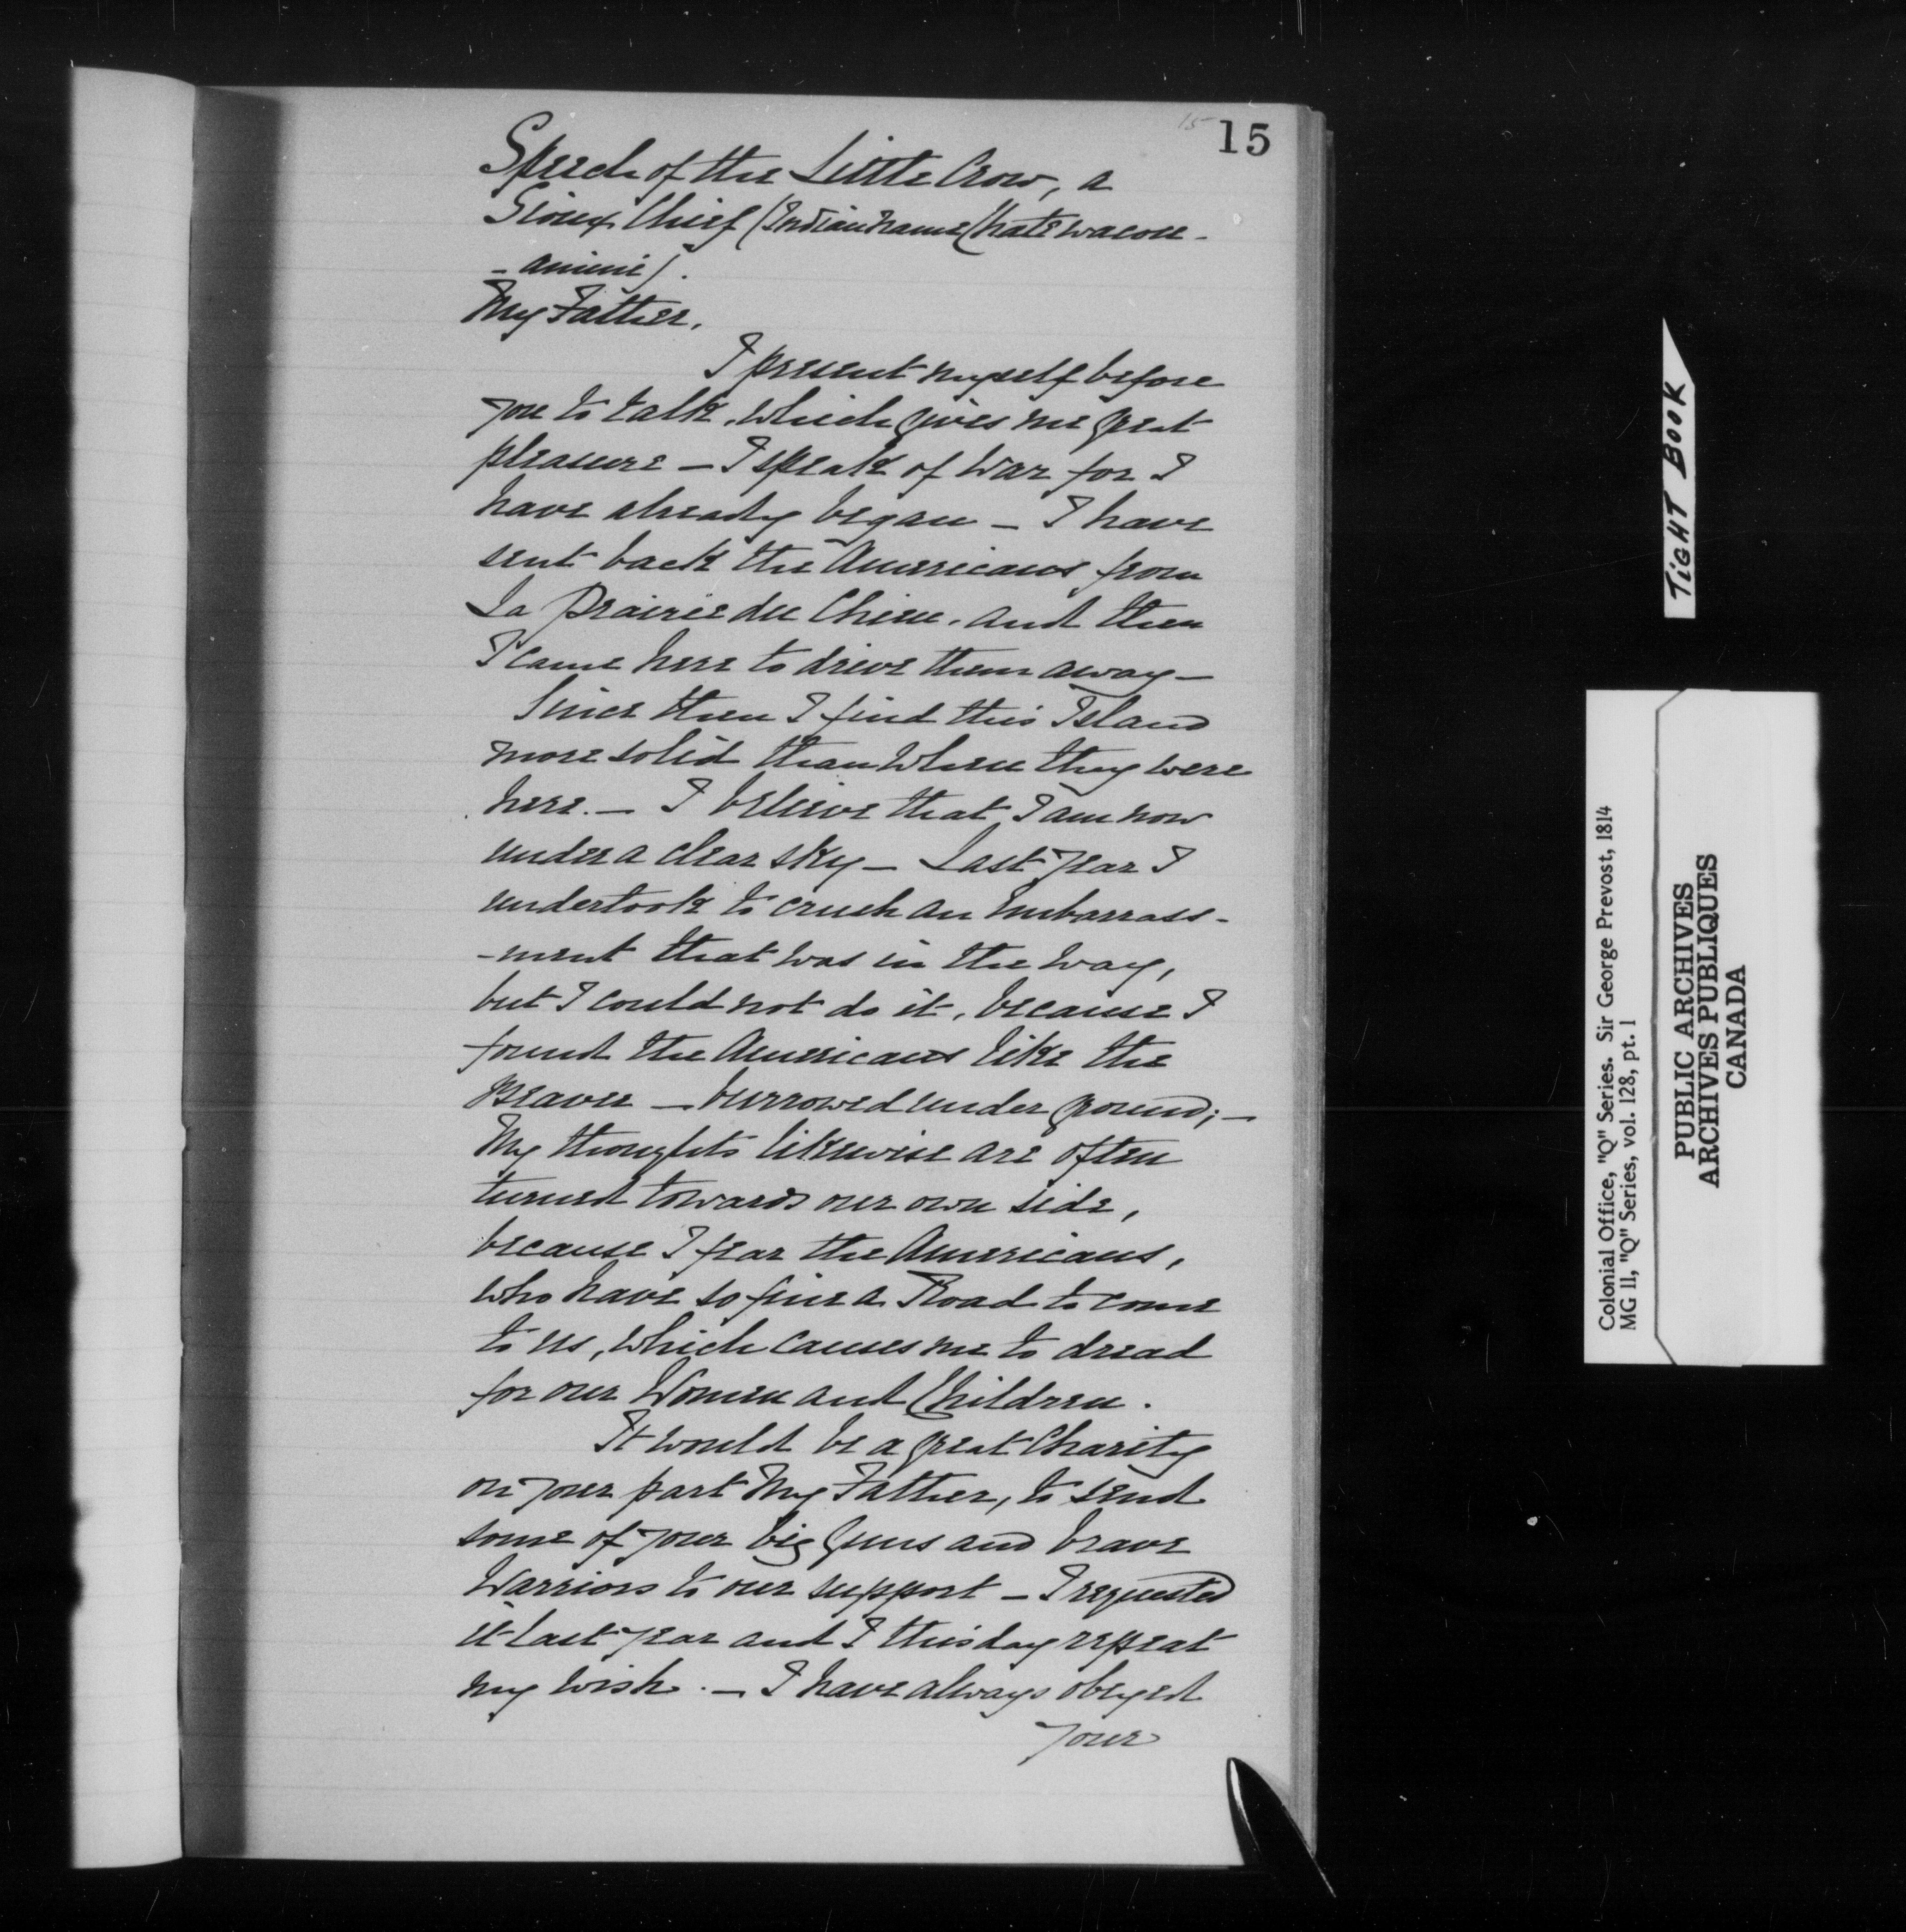 15
15
Speech of the Little Crow, a
Sioux Chief (Indian name Chatewacou-
-amini).
My Father,
I present myself before
you to talk, which gives me great
pleasure — I speak of war for I
have already began — I have
sent back the Americans from
La Prairie du Chien, and then
I came here to drive them away —
Since then I find this Island
more solid than when they were
here. — I believe that I am now
under a clear sky — Last year I
undertook to crush an Embarrass-
-ment that was in the way,
but I could not do it, because I
found the Americans like the
Beaver — burrowed under ground; —
My thoughts likewise are often
turned towards our own side,
because I fear the Americans,
who have so fine a Road to come
to us, which causes me to dread
for our Women and Children.
It would be a great Charity
on your part My Father, to send
some of your big Guns and brave
Warriors to our support — I requested
it last year and I this day repeat
my wish. — I have always obeyed
your
TIGHT BOOK
Colonial Office, "Q" Series. Sir George Prevost, 1814
MG 11, "Q" Series, vol. 128, pt. 1
PUBLIC ARCHIVES
ARCHIVES PUBLIQUES
CANADA